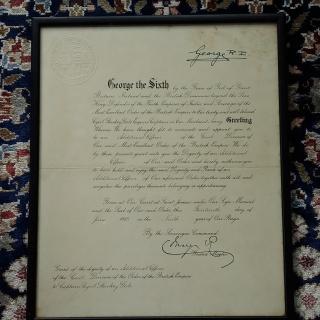 George R.I.
George the Sixth by the Grace of God of Great
Britain Ireland and the British Dominions beyond the Seas
King Defender of the Faith Emperor of India and Sovereign of the
Most Excellent Order of the British Empire to Our trusty and well beloved
Cyril Captain in the Army Greeting
Whereas We have thought fit to nominate and appoint you to
be an Additional Officer of the Civil Division of
Our said Most Excellent Order of the British Empire We do
by these presents grant unto you the Dignity of an Additional
Officer of Our said Order and hereby authorise you
to have hold and enjoy the said Dignity and Rank of an
Additional Officer of Our aforesaid Order together with all and
singular the privileges thereunto belonging or appertaining
Given at Our Court at Saint James's under Our Sign Manual
and the Seal of Our said Order this day of
June in the Ninth year of Our Reign
By the Sovereign's Command
Grand Master
Grant of the dignity of an Additional Officer
of the Civil Division of the Order of the British Empire
to Captain Cyril